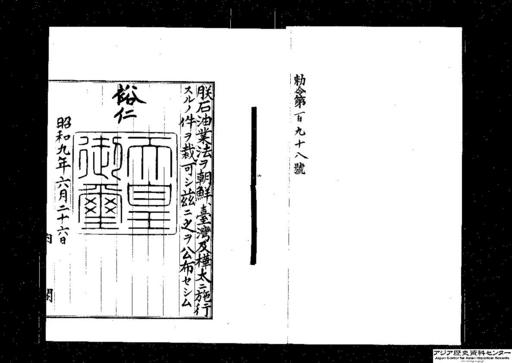 勅令第百九十八號
朕石油業法ヲ朝鮮、臺灣及樺太ニ施行
スルノ件ヲ裁可シ茲ニ之ヲ公布セシム
裕仁
天皇御璽
昭和九年六月二十六日
内閣
アジア歴史資料センター
Japan Center for Asian Historical Records